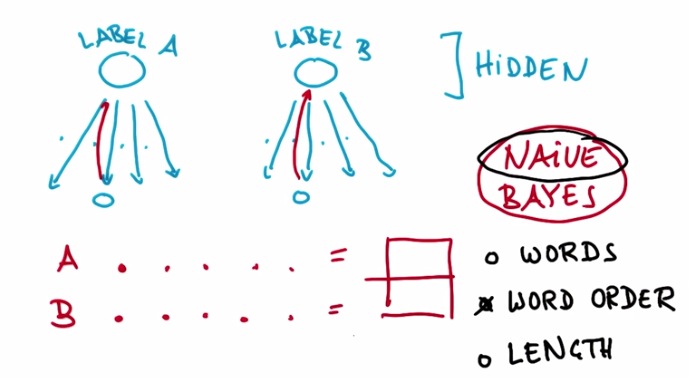 LABEL A
LABEL B
HiDDEN
NAiVE
BAYES
A . . . . . =
B . . . . . =
o WORDS
x WORD ORDER
o LENGTH